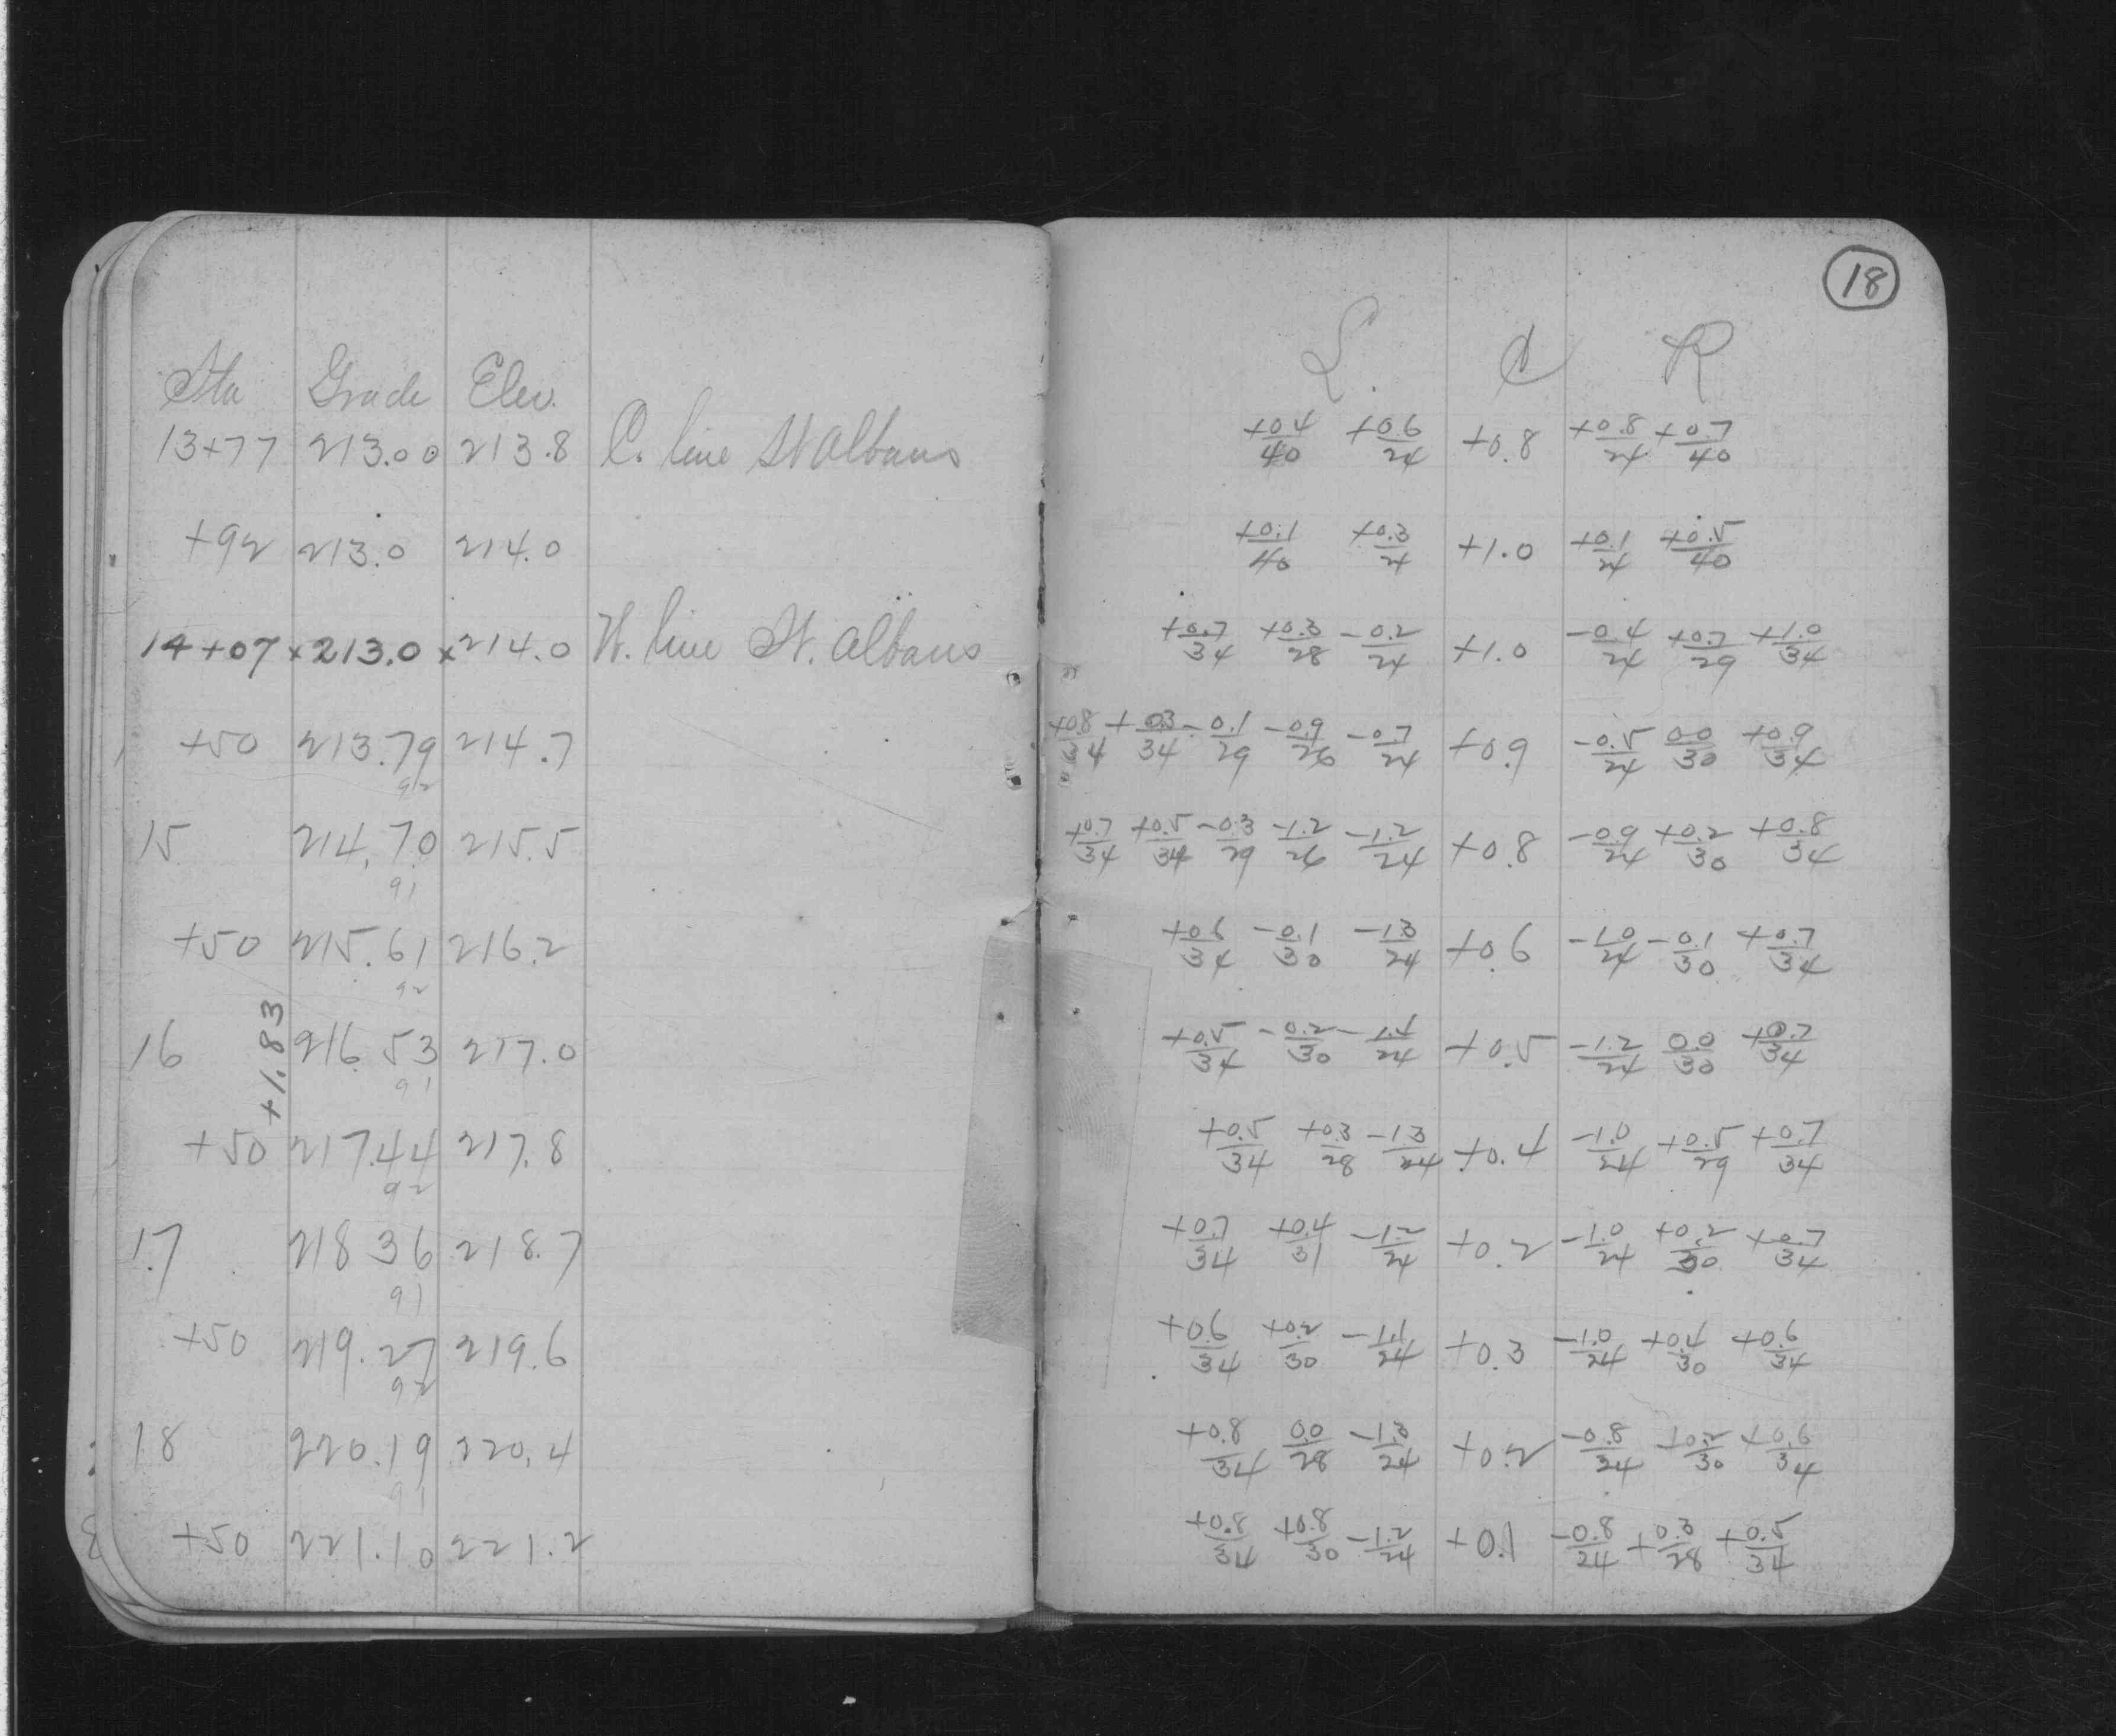 18
Sta Grade Elev. L. ℄ R
13+77 213.00 213.8 C. line St Albans +0.4/40 +0.6/24 +0.8 +0.8/24 +0.7/40
+92 213.0 214.0 +0.1/40 +0.3/24 +1.0 +0.1/24 +0.5/40
14+07 x 213.0 x 214.0 W. line St. Albans +0.7/34 +0.3/28 -0.2/24 +1.0 -0.4/24 +0.7/29 +1.0/34
+50 213.79 214.7 +0.8/34 +0.3/34 -0.1/29 -0.9/26 -0.7/24 +0.9 -0.5/24 0.0/30 +0.9/34
92
15 214.70 215.5 +0.7/34 +0.5/34 -0.3/29 -1.2/26 -1.2/24 +0.8 -0.9/24 +0.2/30 +0.8/34
91
+50 215.61 216.2 +0.6/34 -0.1/30 -1.3/24 +0.6 -1.0/24 -0.1/30 +0.7/34
92
+1.83
16 216.53 217.0 +0.5/34 -0.2/30 -1.4/24 +0.5 -1.2/24 0.0/30 +0.7/34
91
+50 217.44 217.8 +0.5/34 +0.3/28 -1.3/24 +0.4 -1.0/24 +0.5/29 +0.7/34
92
17 218 36 218.7 +0.7/34 +0.4/31 -1.2/24 +0.2 -1.0/24 +0.2/30 +0.7/34
91
+50 219.27 219.6 +0.6/34 +0.2/30 -1.1/24 +0.3 -1.0/24 +0.4/30 +0.6/34
92
18 220.19 220.4 +0.8/34 0.0/28 -1.3/24 +0.2 -0.8/24 +0.2/30 +0.6/34
91
+50 221.10 221.2 +0.8/34 +0.8/30 -1.2/24 +0.1 -0.8/24 +0.3/28 +0.5/34